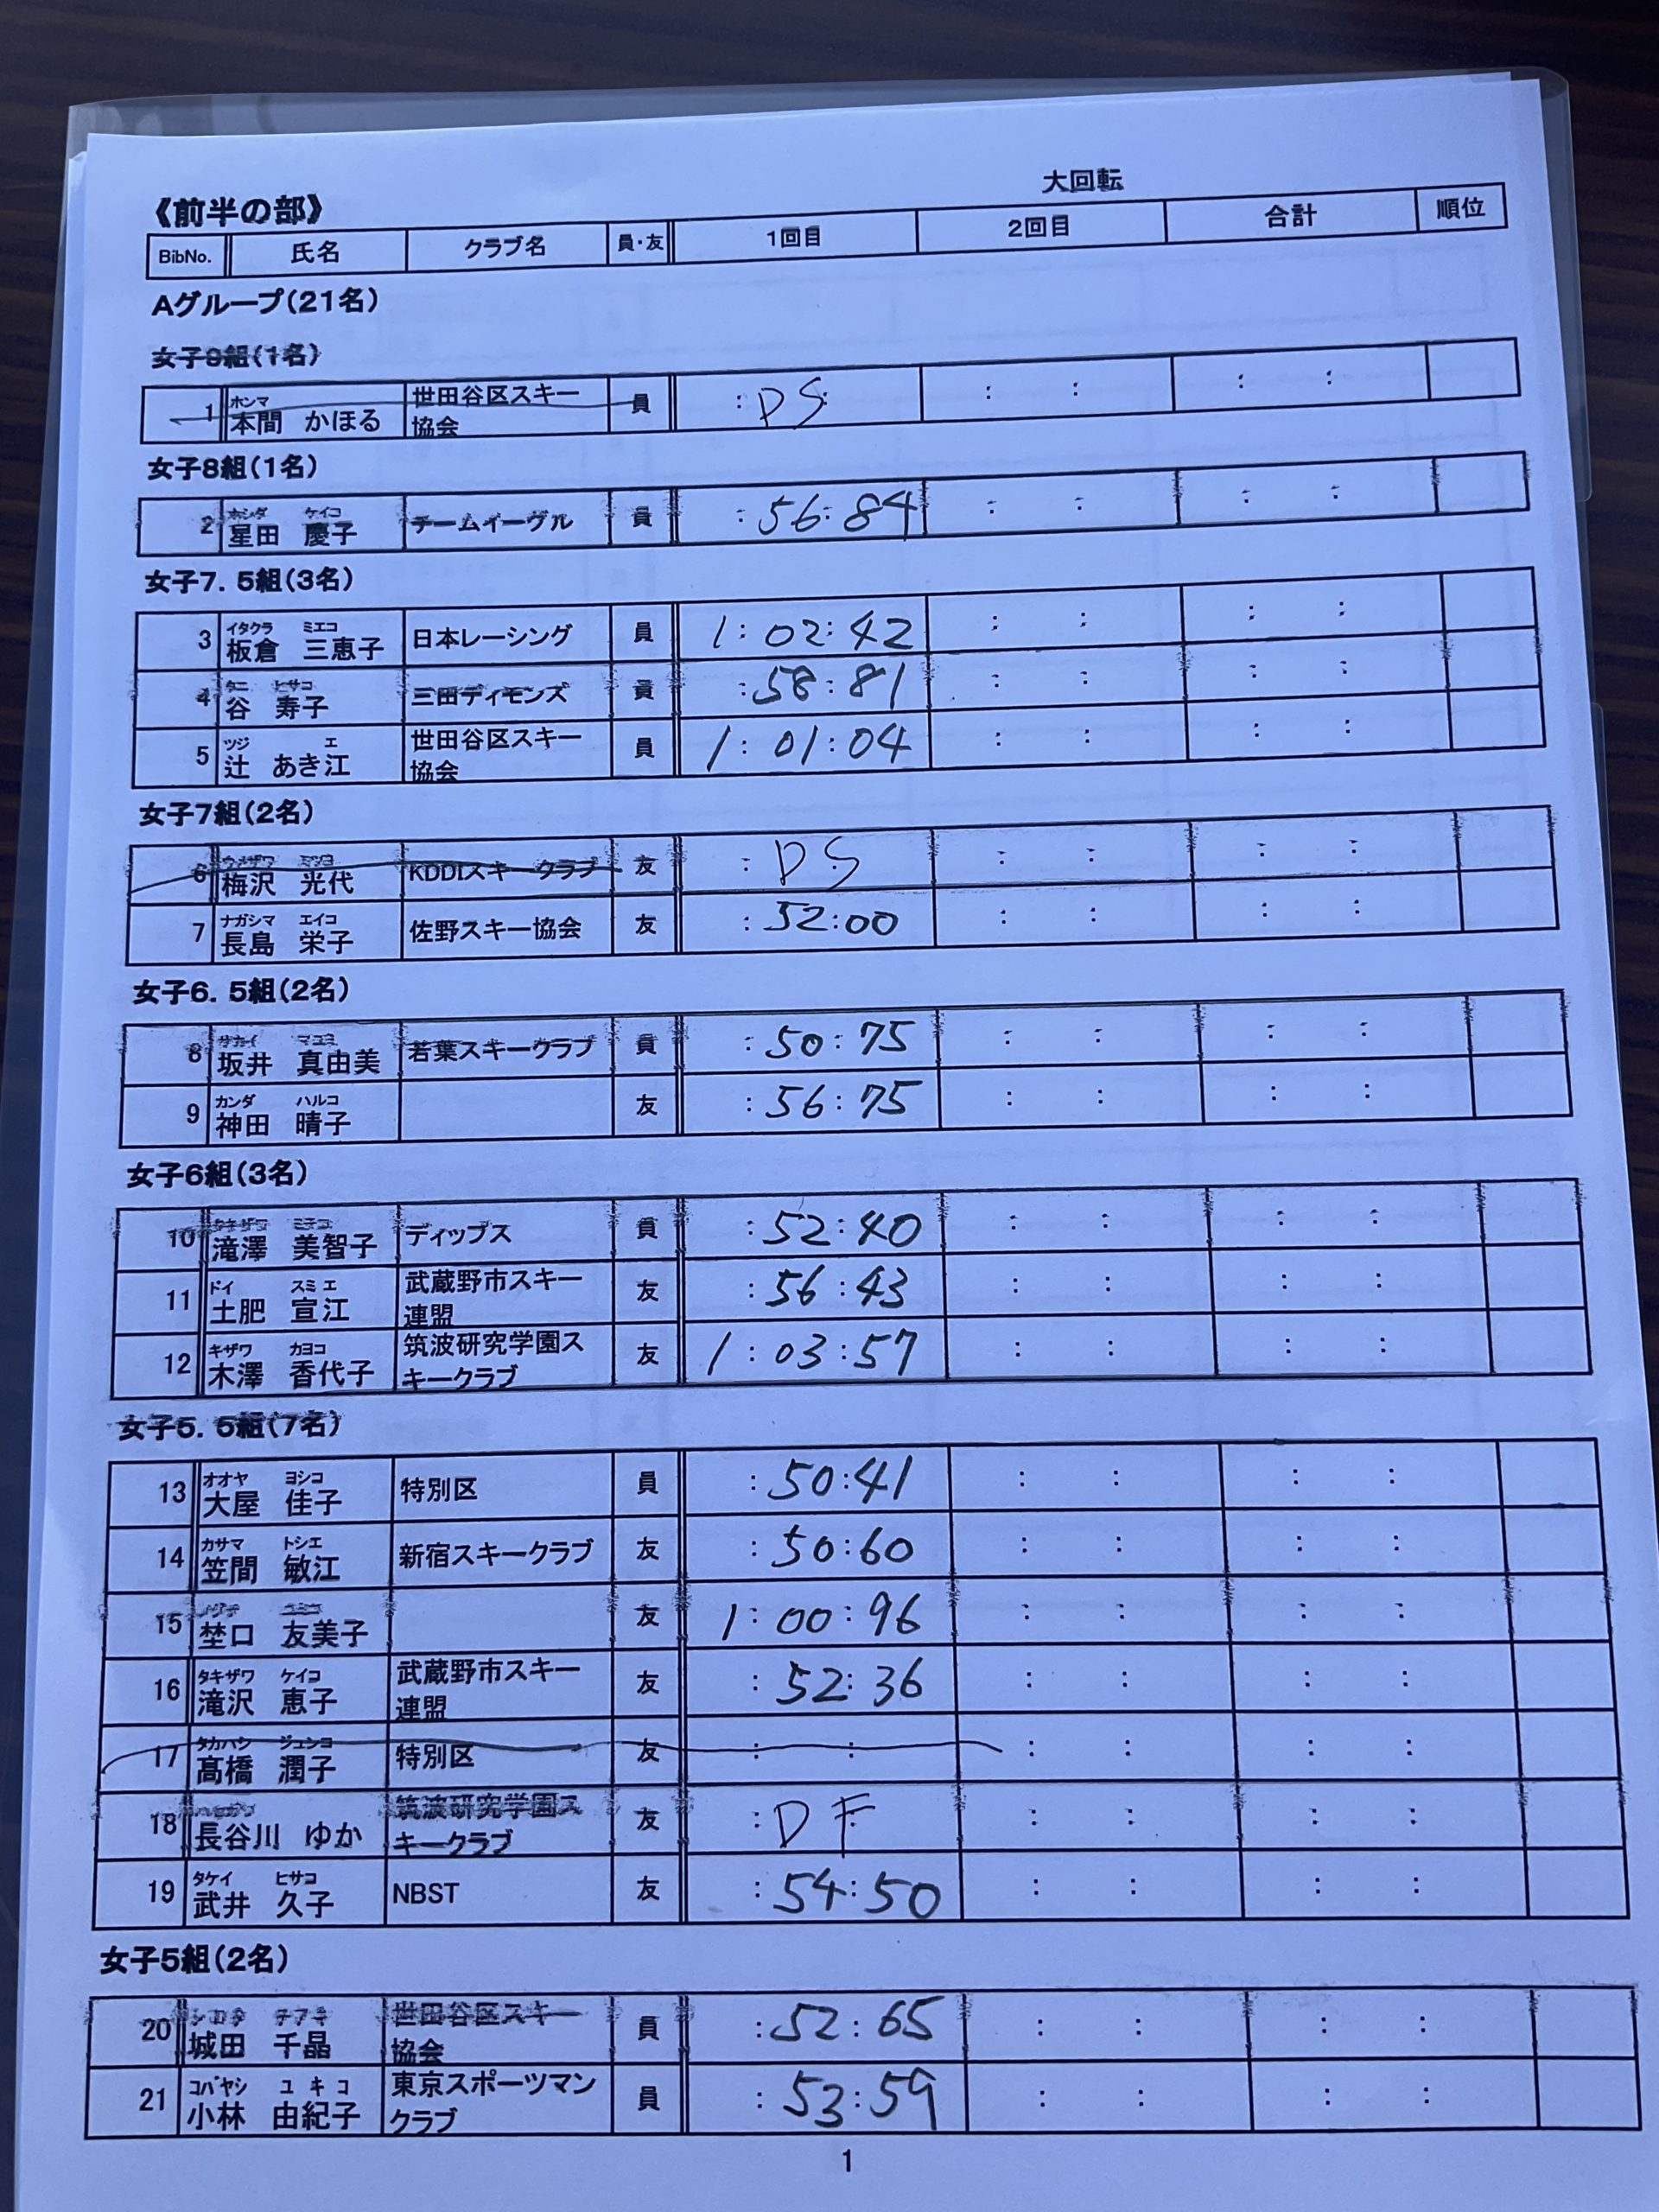 大回転
《前半の部》
BibNo. 氏名 クラブ名 員・友 1回目 2回目 合計 順位
Aグループ(21名)
女子9組(1名)
ホンマ
1 本間 かほる 世田谷区スキー協会 員 : DS : : : : :
女子8組(1名)
ホシダ ケイコ
2 星田 慶子 チームイーグル 員 : 56:84 : : : :
女子7.5組(3名)
イタクラ ミエコ
3 板倉 三恵子 日本レーシング 員 1:02:42 : : : :
タニ ヒサコ
4 谷 寿子 三田ディモンズ 員 :58:81 : : : :
ツジ エ
5 辻 あき江 世田谷区スキー協会 員 1:01:04 : : : :
女子7組(2名)
ウメザワ ミツヨ
6 梅沢 光代 KDDIスキークラブ 友 : DS : : : :
ナガシマ エイコ
7 長島 栄子 佐野スキー協会 友 :52:00 : : : :
女子6.5組(2名)
サカイ マユミ
8 坂井 真由美 若葉スキークラブ 員 :50:75 : : : :
カンダ ハルコ
9 神田 晴子 友 :56:75 : : : :
女子6組(3名)
タキザワ ミチコ
10 滝澤 美智子 ディップス 員 :52:40 : : : :
ドイ スミエ
11 土肥 宣江 武蔵野市スキー連盟 友 :56:43 : : : :
キザワ カヨコ
12 木澤 香代子 筑波研究学園スキークラブ 友 1:03:57 : : : :
女子5.5組(7名)
オオヤ ヨシコ
13 大屋 佳子 特別区 員 :50:41 : : : :
カサマ トシエ
14 笠間 敏江 新宿スキークラブ 友 :50:60 : : : :
15 埜口 友美子 友 1:00:96 : : : :
タキザワ ケイコ
16 滝沢 恵子 武蔵野市スキー連盟 友 :52:36 : : : :
タカハシ ジュンコ
17 髙橋 潤子 特別区 友 : : : : : :
18 長谷川 ゆか 筑波研究学園スキークラブ 友 : DF : : : :
タケイ ヒサコ
19 武井 久子 NBST 友 :54:50 : : : :
女子5組(2名)
シロタ チアキ
20 城田 千晶 世田谷区スキー協会 員 :52:65 : : : :
コバヤシ ユキコ
21 小林 由紀子 東京スポーツマンクラブ 員 :53:59 : : : :
1